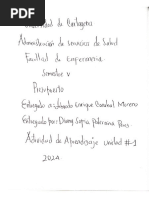 Universidad de Cartagena
Administración de servicios de Salud
Facultad de Enfermería
Semestre V
Presupuesto
Entregado a: Enrique Moreno
Entregado por: Sofia
Actividad de Aprendizaje unidad #1
2024